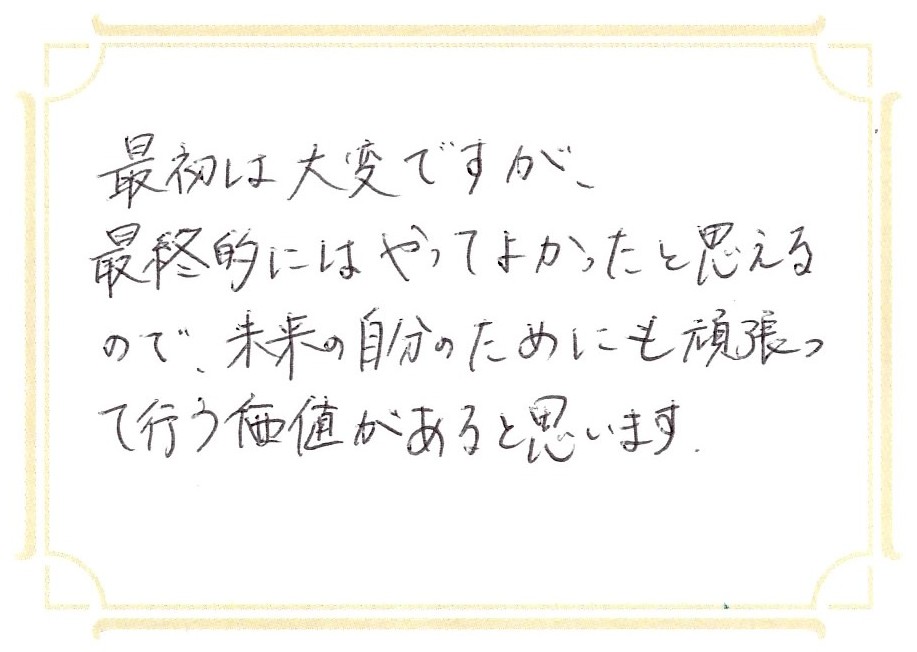 最初は大変ですが、
最終的にはやってよかったと思える
ので、未来の自分のためにも頑張っ
て行う価値があると思います.